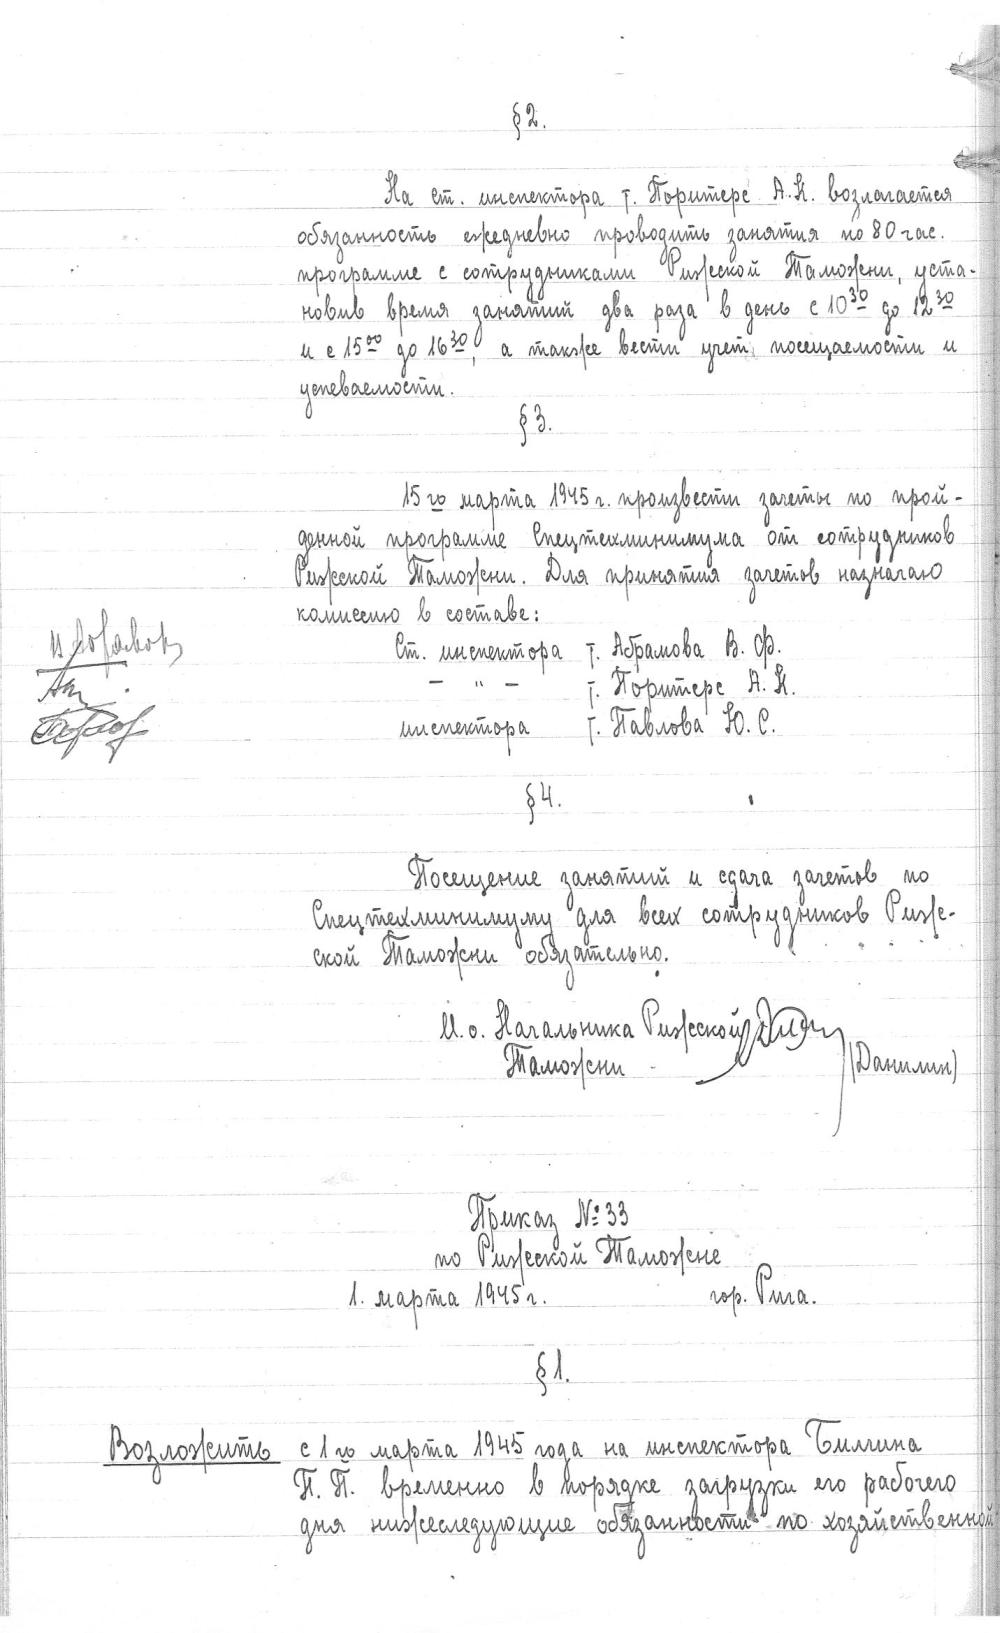 §2.
На ст. инспектора т. Поритерс А.К. возлагается
обязанность ежедневно проводить занятия по 80 час.
программе с сотрудниками Рижской Таможни, уста-
новив время занятий два раза в день с 10³⁰ до 12³⁰
и с 15⁰⁰ до 16³⁰, а также вести учет посещаемости и
успеваемости.
§3.
15го марта 1945 г. произвести зачеты по прой-
денной программе Спецтехминимума от сотрудников
Рижской Таможни. Для принятия зачетов назначаю
комиссию в составе:
Ст. инспектора т. Абрамова В. Ф.
— " — т. Поритерс А. К.
инспектора т. Павлова Ю. С.
§4.
Посещение занятий и сдача зачетов по
Спецтехминимуму для всех сотрудников Риж-
ской Таможни обязательно.
И.о. Начальника Рижской
Таможни (Данилин)
Приказ №33
по Рижской Таможне
1. марта 1945 г. гор. Рига.
§1.
Возложить с 1го марта 1945 года на инспектора Билгина
П. П. временно в порядке загрузки его рабочего
дня нижеследующие обязанности по хозяйственной